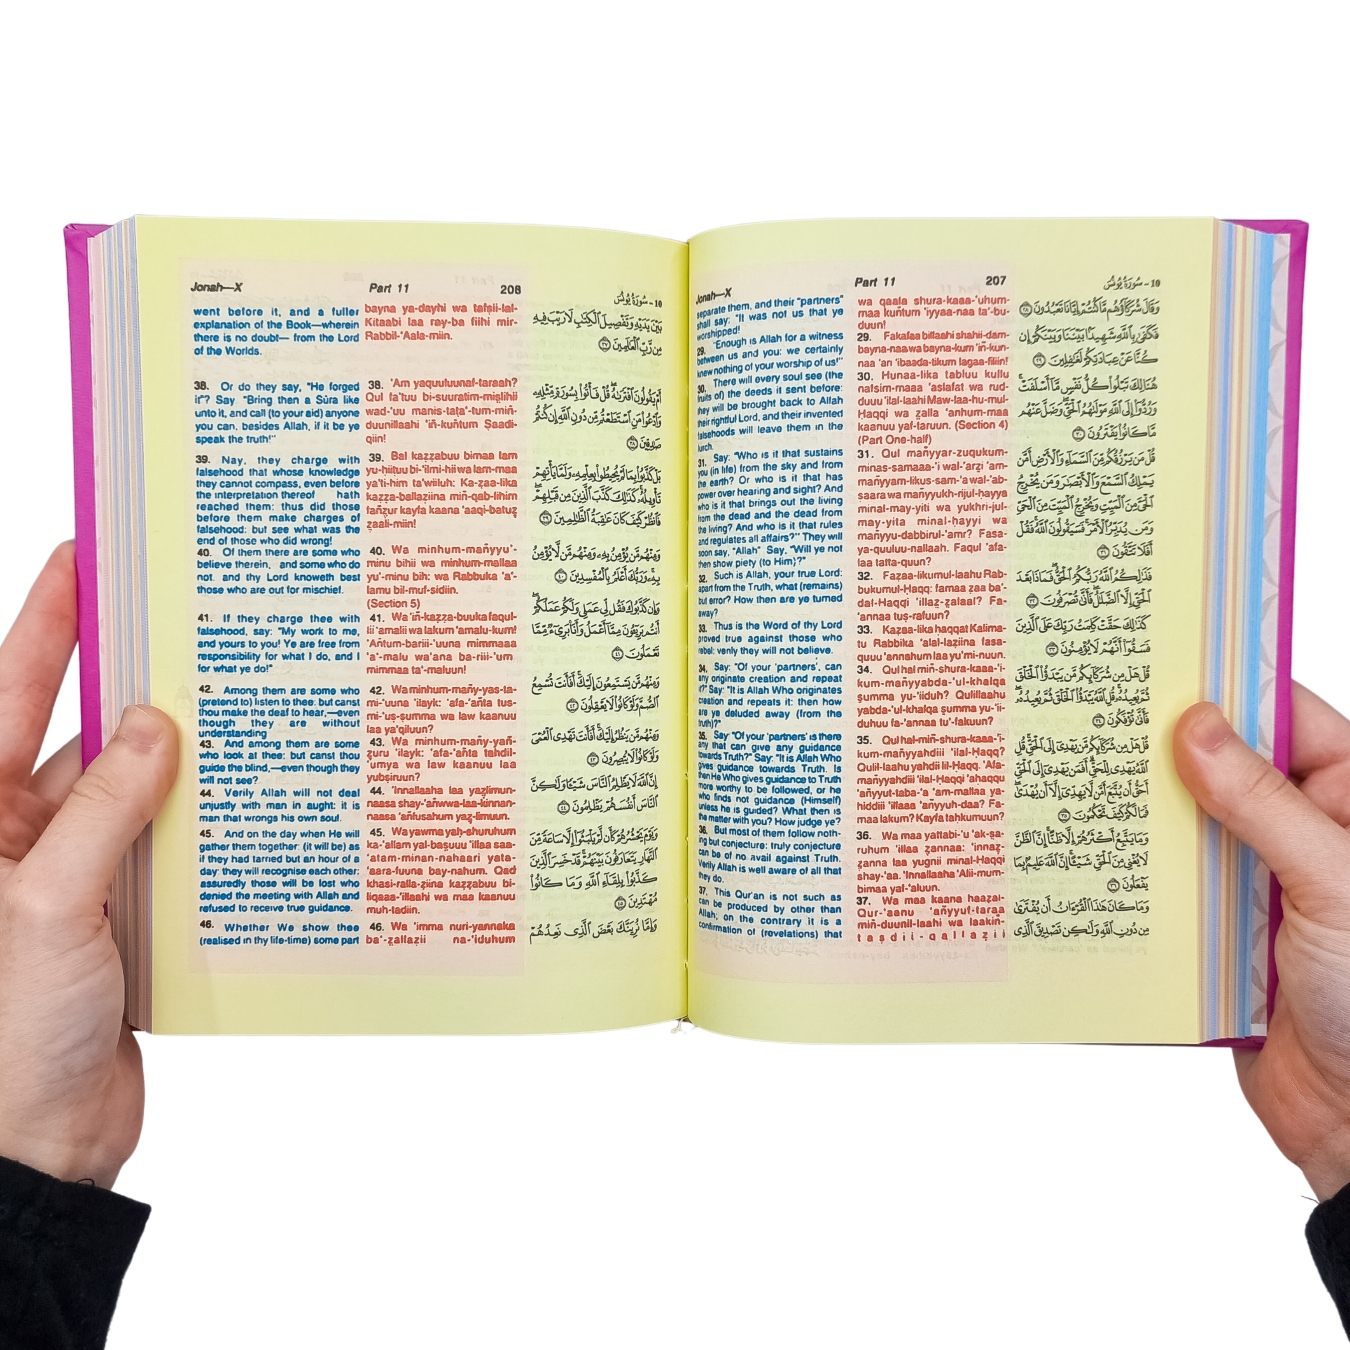 Jonah—X
Part 11
207
10 - سُورَةُ يُونُسَ
separate them, and their "partners"
shall say: "It was not us that ye
worshipped!
29. "Enough is Allah for a witness
between us and you: we certainly
knew nothing of your worship of us!"
30. There will every soul see (the
fruits of) the deeds it sent before:
they will be brought back to Allah
their rightful Lord, and their invented
falsehoods will leave them in the
lurch.
31. Say: "Who is it that sustains
you (in life) from the sky and from
the earth? Or who is it that has
power over hearing and sight? And
who is it that brings out the living
from the dead and the dead from
the living? And who is it that rules
and regulates all affairs?" They will
soon say, "Allah" Say, "Will ye not
then show piety (to Him)?"
32. Such is Allah, your true Lord:
apart from the Truth, what (remains)
but error? How then are ye turned
away?
33. Thus is the Word of thy Lord
proved true against those who
rebel: verily they will not believe.
34. Say: "Of your 'partners', can
any originate creation and repeat
it?" Say: "It is Allah Who originates
creation and repeats it: then how
are ye deluded away (from the
truth)?"
35. Say "Of your 'partners' is there
any that can give any guidance
towards Truth?" Say: "It is Allah Who
gives guidance towards Truth. Is
then He Who gives guidance to Truth
more worthy to be followed, or he
who finds not guidance (Himself)
unless he is guided? What then is
the matter with you? How judge ye?
36. But most of them follow noth-
ing but conjecture: truly conjecture
can be of no avail against Truth.
Verily Allah is well aware of all that
they do.
37. This Qur'an is not such as
can be produced by other than
Allah; on the contrary it is a
confirmation of (revelations) that
wa qaala shura-kaaa-'uhum-
maa kuñtum 'iyyaa-naa ta'-bu-
duun!
29. Fakafaa billaahi shahii-dam-
bayna-naa wa bayna-kum 'iñ-kun-
naa 'an 'ibaada-tikum lagaa-filiin!
30. Hunaa-lika tabluu kullu
nafsim-maaa 'aslafat wa rud-
duuu 'ilal-laahi Maw-laa-hu-mul-
Ḥaqqi wa ẓalla 'anhum-maa
kaanuu yaf-taruun. (Section 4)
(Part One-half)
31. Qul mañyyar-zuqukum-
minas-samaaa-'i wal-'arẓi 'am-
mañyyam-likus-sam-'a wal-'ab-
saara wa mañyyukh-rijul-ḥayya
minal-may-yiti wa yukhri-jul-
may-yita minal-ḥayyi wa
mañyyu-dabbirul-'amr? Fasa-
ya-quuluu-nallaah. Faqul 'afa-
laa tatta-quun?
32. Faẓaa-likumul-laahu Rab-
bukumul-Ḥaqq: famaa ẓaa ba'-
dal-Ḥaqqi 'illaẓ-ẓalaal? Fa-
'annaa tuṣ-rafuun?
33. Kaẓaa-lika haqqat Kalima-
tu Rabbika 'alal-laẓiina fasa-
quuu 'annahum laa yu'mi-nuun.
34. Qul hal miñ-shura-kaaa-'i-
kum-mañyyabda-'ul-khalqa
ṣumma yu-'iiduh? Qulillaahu
yabda-'ul-khalqa ṣumma yu-'ii-
duhuu fa-'annaa tu'-fakuun?
35. Qul hal-miñ-shura-kaaa-'i-
kum-mañyyahdiii 'ilal-Ḥaqq?
Qulil-laahu yahdii lil-Ḥaqq. 'Afa-
mañyyahdiii 'ilal-Ḥaqqi 'ahaqqu
'añyyut-taba-'a 'am-mallaa ya-
hiddiii 'illaaa 'añyyuh-daa? Fa-
maa lakum? Kayfa tahkumuun?
36. Wa maa yattabi-'u 'ak-ṣa-
ruhum 'illaa ẓannaa: 'innaẓ-
ẓanna laa yugnii minal-Ḥaqqi
shay-'aa. 'Innallaaha 'Alii-mum-
bimaa yaf-'aluun.
37. Wa maa kaana haaẓal-
Qur-'aanu 'añyyuf-taraa
miñ-duunil-laahi wa laakiñ-
taṣdii-qallaẓii
وَقَالَ شُرَكَاؤُهُم مَّا كُنتُمْ إِيَّانَا تَعْبُدُونَ ﴿٢٨﴾
فَكَفَىٰ بِاللَّهِ شَهِيدًا بَيْنَنَا وَبَيْنَكُمْ إِن
كُنَّا عَنْ عِبَادَتِكُمْ لَغَافِلِينَ ﴿٢٩﴾
هُنَالِكَ تَبْلُوا كُلُّ نَفْسٍ مَّا أَسْلَفَتْ
وَرُدُّوا إِلَى اللَّهِ مَوْلَاهُمُ الْحَقِّ وَضَلَّ عَنْهُم
مَّا كَانُوا يَفْتَرُونَ ﴿٣٠﴾
قُلْ مَن يَرْزُقُكُم مِّنَ السَّمَاءِ وَالْأَرْضِ أَمَّن
يَمْلِكُ السَّمْعَ وَالْأَبْصَارَ وَمَن يُخْرِجُ
الْحَيَّ مِنَ الْمَيِّتِ وَيُخْرِجُ الْمَيِّتَ مِنَ الْحَيِّ
وَمَن يُدَبِّرُ الْأَمْرَ فَسَيَقُولُونَ اللَّهُ فَقُلْ
أَفَلَا تَتَّقُونَ ﴿٣١﴾
فَذَٰلِكُمُ اللَّهُ رَبُّكُمُ الْحَقُّ فَمَاذَا بَعْدَ
الْحَقِّ إِلَّا الضَّلَالُ فَأَنَّىٰ تُصْرَفُونَ ﴿٣٢﴾
كَذَٰلِكَ حَقَّتْ كَلِمَتُ رَبِّكَ عَلَى الَّذِينَ
فَسَقُوا أَنَّهُمْ لَا يُؤْمِنُونَ ﴿٣٣﴾
قُلْ هَلْ مِن شُرَكَائِكُم مَّن يَبْدَأُ الْخَلْقَ
ثُمَّ يُعِيدُهُ قُلِ اللَّهُ يَبْدَأُ الْخَلْقَ ثُمَّ يُعِيدُهُ
فَأَنَّىٰ تُؤْفَكُونَ ﴿٣٤﴾
قُلْ هَلْ مِن شُرَكَائِكُم مَّن يَهْدِي إِلَى الْحَقِّ قُلِ
اللَّهُ يَهْدِي لِلْحَقِّ أَفَمَن يَهْدِي إِلَى الْحَقِّ
أَحَقُّ أَن يُتَّبَعَ أَمَّن لَّا يَهِدِّي إِلَّا أَن يُهْدَىٰ
فَمَا لَكُمْ كَيْفَ تَحْكُمُونَ ﴿٣٥﴾
وَمَا يَتَّبِعُ أَكْثَرُهُمْ إِلَّا ظَنًّا إِنَّ الظَّنَّ
لَا يُغْنِي مِنَ الْحَقِّ شَيْئًا إِنَّ اللَّهَ عَلِيمٌ بِمَا
يَفْعَلُونَ ﴿٣٦﴾
وَمَا كَانَ هَٰذَا الْقُرْآنُ أَن يُفْتَرَىٰ
مِن دُونِ اللَّهِ وَلَٰكِن تَصْدِيقَ الَّذِي
Jonah—X
Part 11
208
10 - سُورَةُ يُونُسَ
went before it, and a fuller
explanation of the Book—wherein
there is no doubt— from the Lord
of the Worlds.
38. Or do they say, "He forged
it"? Say "Bring then a Sûra like
unto it, and call (to your aid) anyone
you can, besides Allah, if it be ye
speak the truth!"
39. Nay, they charge with
falsehood that whose knowledge
they cannot compass, even before
the interpretation thereof hath
reached them: thus did those
before them make charges of
falsehood: but see what was the
end of those who did wrong!
40. Of them there are some who
believe therein, and some who do
not. and thy Lord knoweth best
those who are out for mischief.
41. If they charge thee with
falsehood, say: "My work to me,
and yours to you! Ye are free from
responsibility for what I do, and I
for what ye do!"
42. Among them are some who
(pretend to) listen to thee: but canst
thou make the deaf to hear,—even
though they are without
understanding
43. And among them are some
who look at thee: but canst thou
guide the blind,—even though they
will not see?
44. Verily Allah will not deal
unjustly with man in aught: it is
man that wrongs his own soul.
45. And on the day when He will
gather them together: (it will be) as
if they had tarried but an hour of a
day: they will recognise each other:
assuredly those will be lost who
denied the meeting with Allah and
refused to receive true guidance.
46. Whether We show thee
(realised in thy life-time) some part
bayna ya-dayhi wa tafṣii-lal-
Kitaabi laa ray-ba fiihi mir-
Rabbil-'Aala-miin.
38. 'Am yaquuluunaf-taraah?
Qul fa'tuu bi-suuratim-miṣlihii
wad-'uu manis-taṭa'-tum-miñ-
duunillaahi 'iñ-kuñtum Ṣaadi-
qiin!
39. Bal kaẓẓabuu bimaa lam
yu-hiiṭuu bi-'ilmi-hii wa lam-maa
ya'ti-him ta'wiiluh: Ka-ẓaa-lika
kaẓẓa-ballaẓiina miñ-qab-lihim
fañẓur kayfa kaana 'aaqi-batuẓ
ẓaali-miin!
40. Wa minhum-mañyyu'-
minu bihii wa minhum-mallaa
yu'-minu bih: wa Rabbuka 'a'-
lamu bil-muf-sidiin.
(Section 5)
41. Wa 'iñ-kaẓẓa-buuka faqul-
lii 'amalii wa lakum 'amalu-kum!
'Añtum-bariii-'uuna mimmaaa
'a'-malu wa'ana ba-riii-'um
mimmaa ta'-maluun!
42. Wa minhum-mañy-yas-ta-
mi-'uuna 'ilayk: 'afa-'añta tus-
mi-'uṣ-ṣumma wa law kaanuu
laa ya'qiluun?
43. Wa minhum-mañy-yañ-
ẓuru 'ilayk: 'afa-'añta tahdil-
'umya wa law kaanuu laa
yubṣiruun?
44. 'Innallaaha laa yaẓlimun-
naasa shay-'añwwa-laa-kinnan-
naasa 'añfusahum yaẓ-limuun.
45. Wa yawma yaḥ-shuruhum
ka-'allam yal-baṣuuu 'illaa saa-
'atam-minan-nahaari yata-
'aara-fuuna bay-nahum. Qad
khasi-ralla-ẓiina kaẓẓabuu bi-
liqaaa-'illaahi wa maa kaanuu
muh-tadiin.
46. Wa 'imma nuri-yannaka
ba'-ẓallaẓii na-'iduhum
بَيْنَ يَدَيْهِ وَتَفْصِيلَ الْكِتَابِ لَا رَيْبَ فِيهِ
مِن رَّبِّ الْعَالَمِينَ ﴿٣٧﴾
أَمْ يَقُولُونَ افْتَرَاهُ قُلْ فَأْتُوا بِسُورَةٍ مِّثْلِهِ
وَادْعُوا مَنِ اسْتَطَعْتُم مِّن دُونِ اللَّهِ إِن كُنتُمْ
صَادِقِينَ ﴿٣٨﴾
بَلْ كَذَّبُوا بِمَا لَمْ يُحِيطُوا بِعِلْمِهِ وَلَمَّا يَأْتِهِمْ
تَأْوِيلُهُ كَذَٰلِكَ كَذَّبَ الَّذِينَ مِن قَبْلِهِمْ
فَانظُرْ كَيْفَ كَانَ عَاقِبَةُ الظَّالِمِينَ ﴿٣٩﴾
وَمِنْهُم مَّن يُؤْمِنُ بِهِ وَمِنْهُم مَّن لَّا يُؤْمِنُ
بِهِ وَرَبُّكَ أَعْلَمُ بِالْمُفْسِدِينَ ﴿٤٠﴾
وَإِن كَذَّبُوكَ فَقُل لِّي عَمَلِي وَلَكُمْ عَمَلُكُمْ
أَنتُم بَرِيئُونَ مِمَّا أَعْمَلُ وَأَنَا بَرِيءٌ مِّمَّا
تَعْمَلُونَ ﴿٤١﴾
وَمِنْهُم مَّن يَسْتَمِعُونَ إِلَيْكَ أَفَأَنتَ تُسْمِعُ
الصُّمَّ وَلَوْ كَانُوا لَا يَعْقِلُونَ ﴿٤٢﴾
وَمِنْهُم مَّن يَنظُرُ إِلَيْكَ أَفَأَنتَ تَهْدِي الْعُمْيَ
وَلَوْ كَانُوا لَا يُبْصِرُونَ ﴿٤٣﴾
إِنَّ اللَّهَ لَا يَظْلِمُ النَّاسَ شَيْئًا وَلَٰكِنَّ
النَّاسَ أَنفُسَهُمْ يَظْلِمُونَ ﴿٤٤﴾
وَيَوْمَ يَحْشُرُهُمْ كَأَن لَّمْ يَلْبَثُوا إِلَّا سَاعَةً مِّنَ
النَّهَارِ يَتَعَارَفُونَ بَيْنَهُمْ قَدْ خَسِرَ الَّذِينَ
كَذَّبُوا بِلِقَاءِ اللَّهِ وَمَا كَانُوا
مُهْتَدِينَ ﴿٤٥﴾
وَإِمَّا نُرِيَنَّكَ بَعْضَ الَّذِي نَعِدُهُمْ